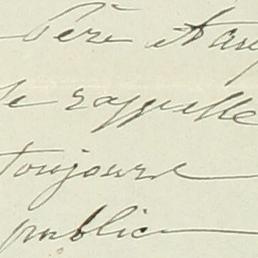 Père
se rappelle
toujours
public